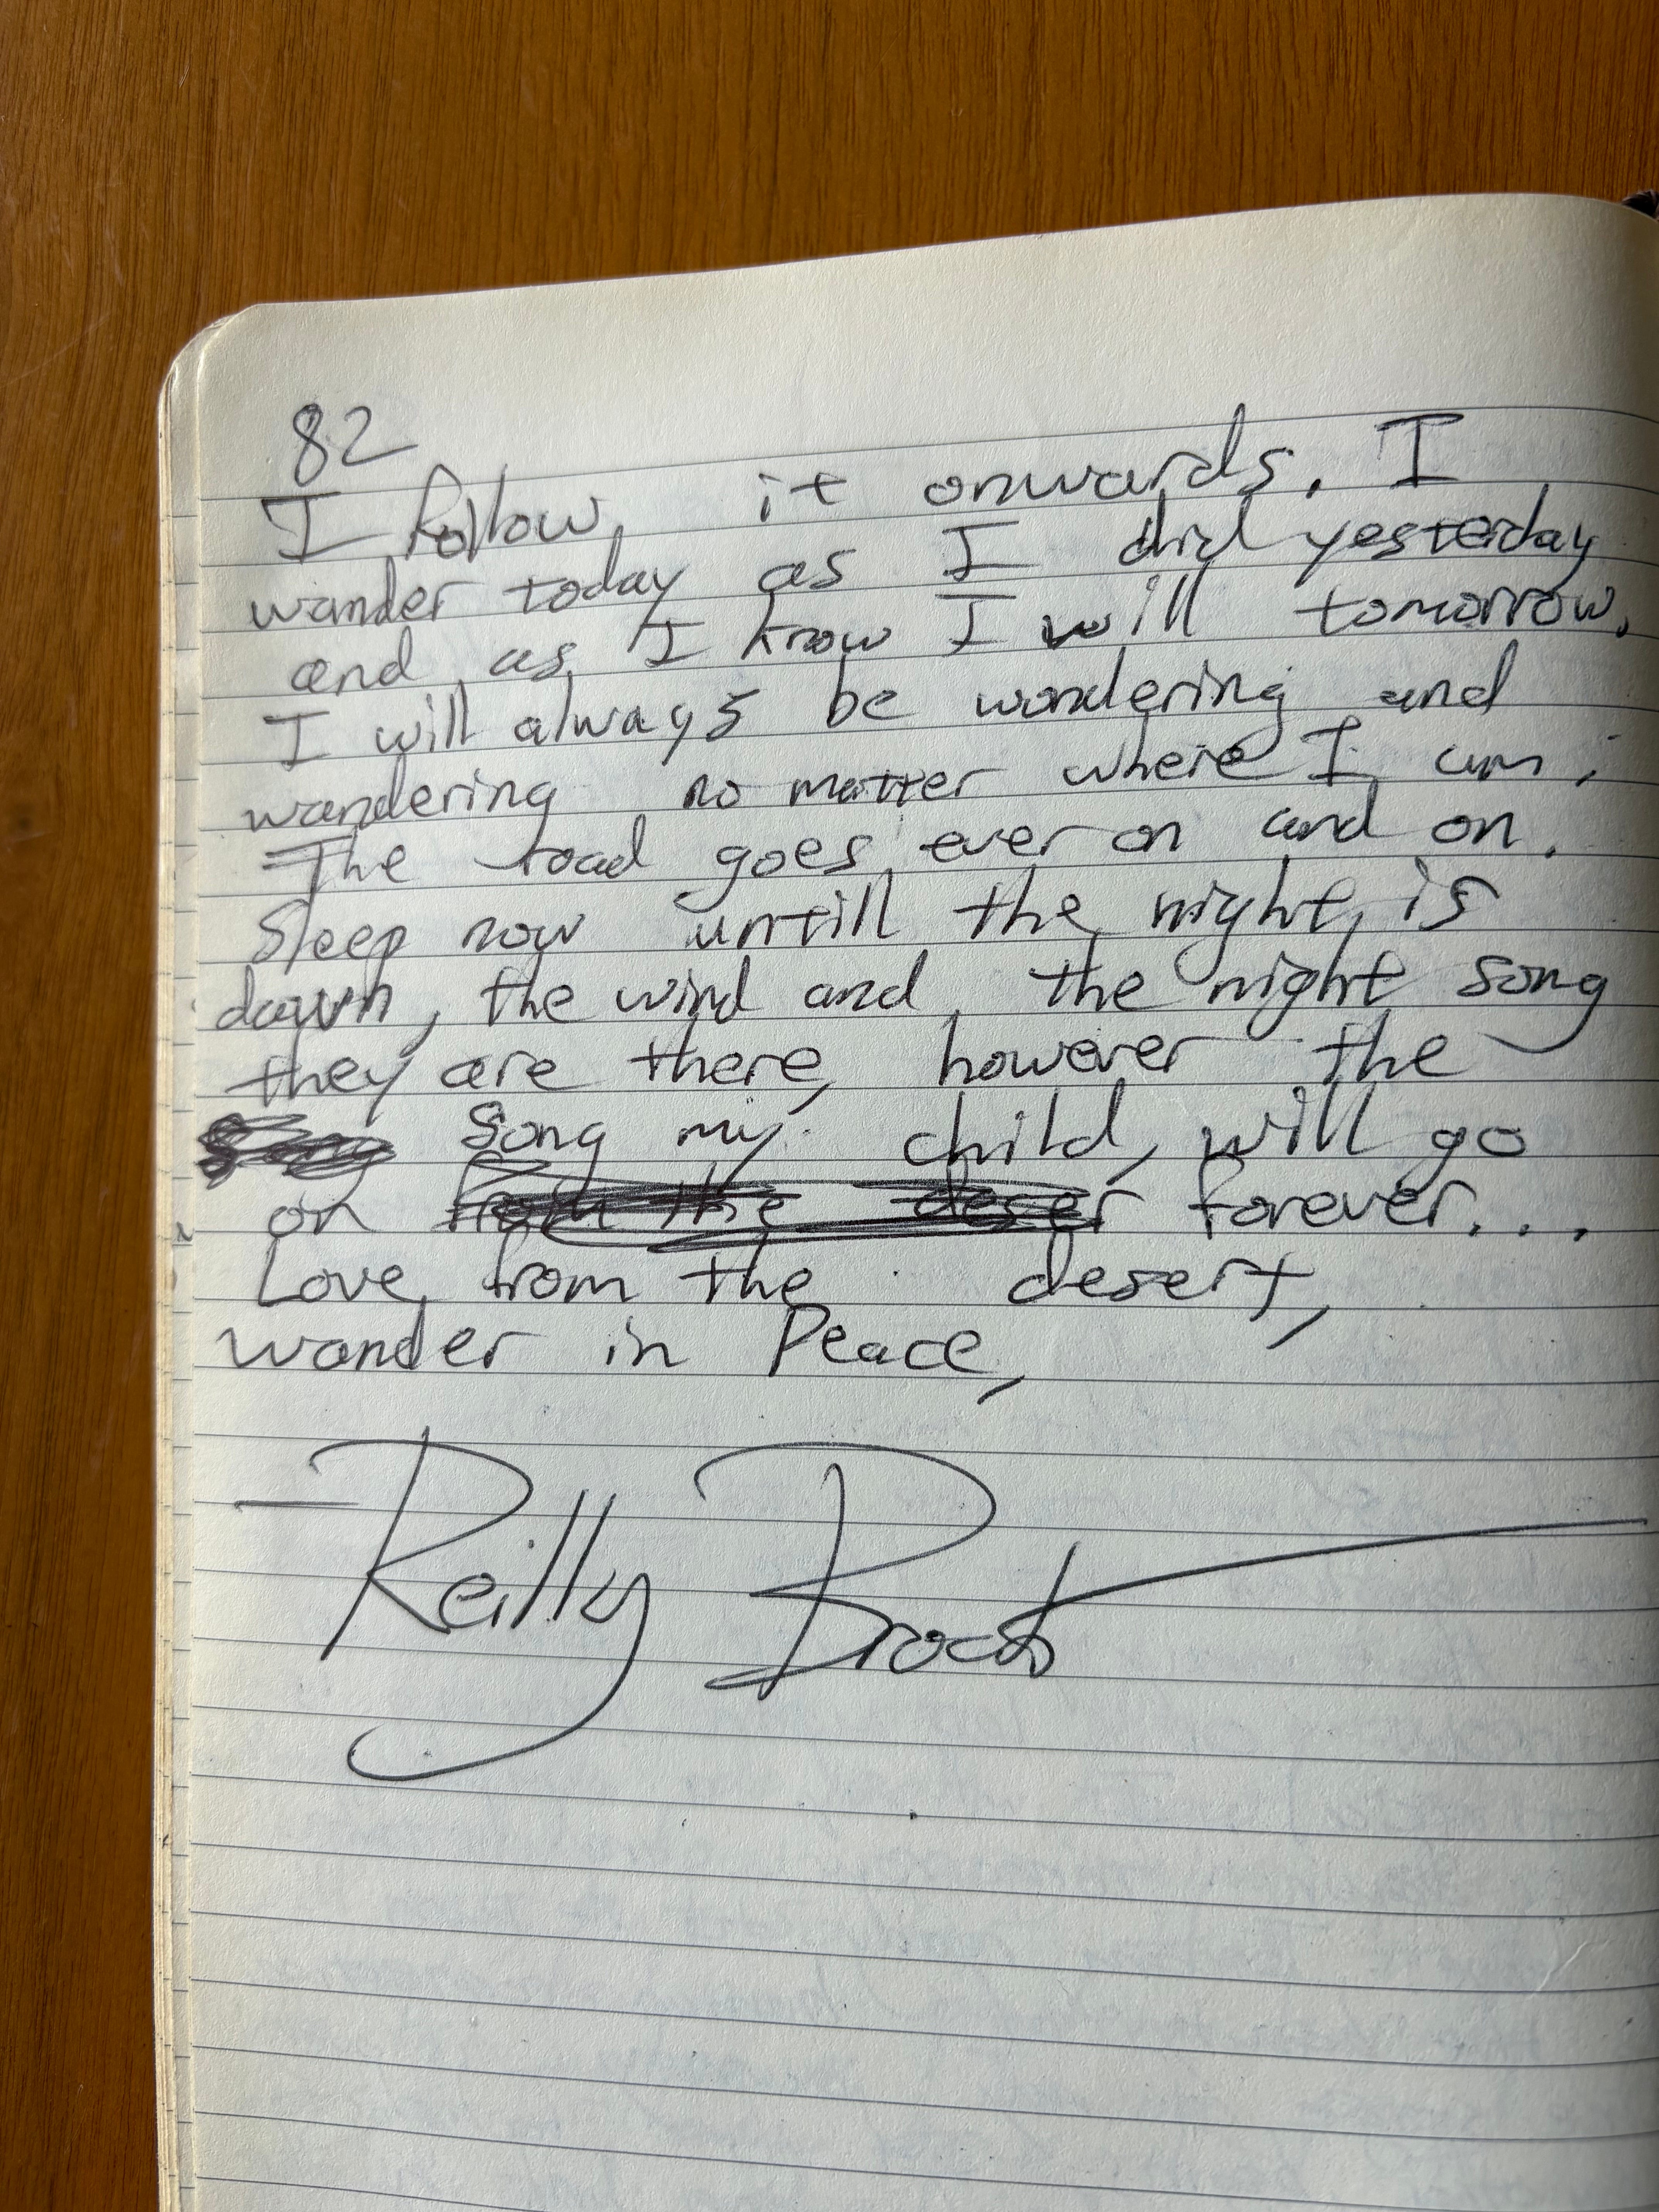 82
I follow it onwards. I
wander today as I did yesterday
and as I know I will tomorrow.
I will always be wondering and
wandering no matter where I am;
The road goes ever on and on.
Sleep now untill the night is
dawn, the wind and the night song
they are there, however the
Song Song my child, will go
on from the deser forever...
Love from the desert,
wander in Peace,
Reilly Brock